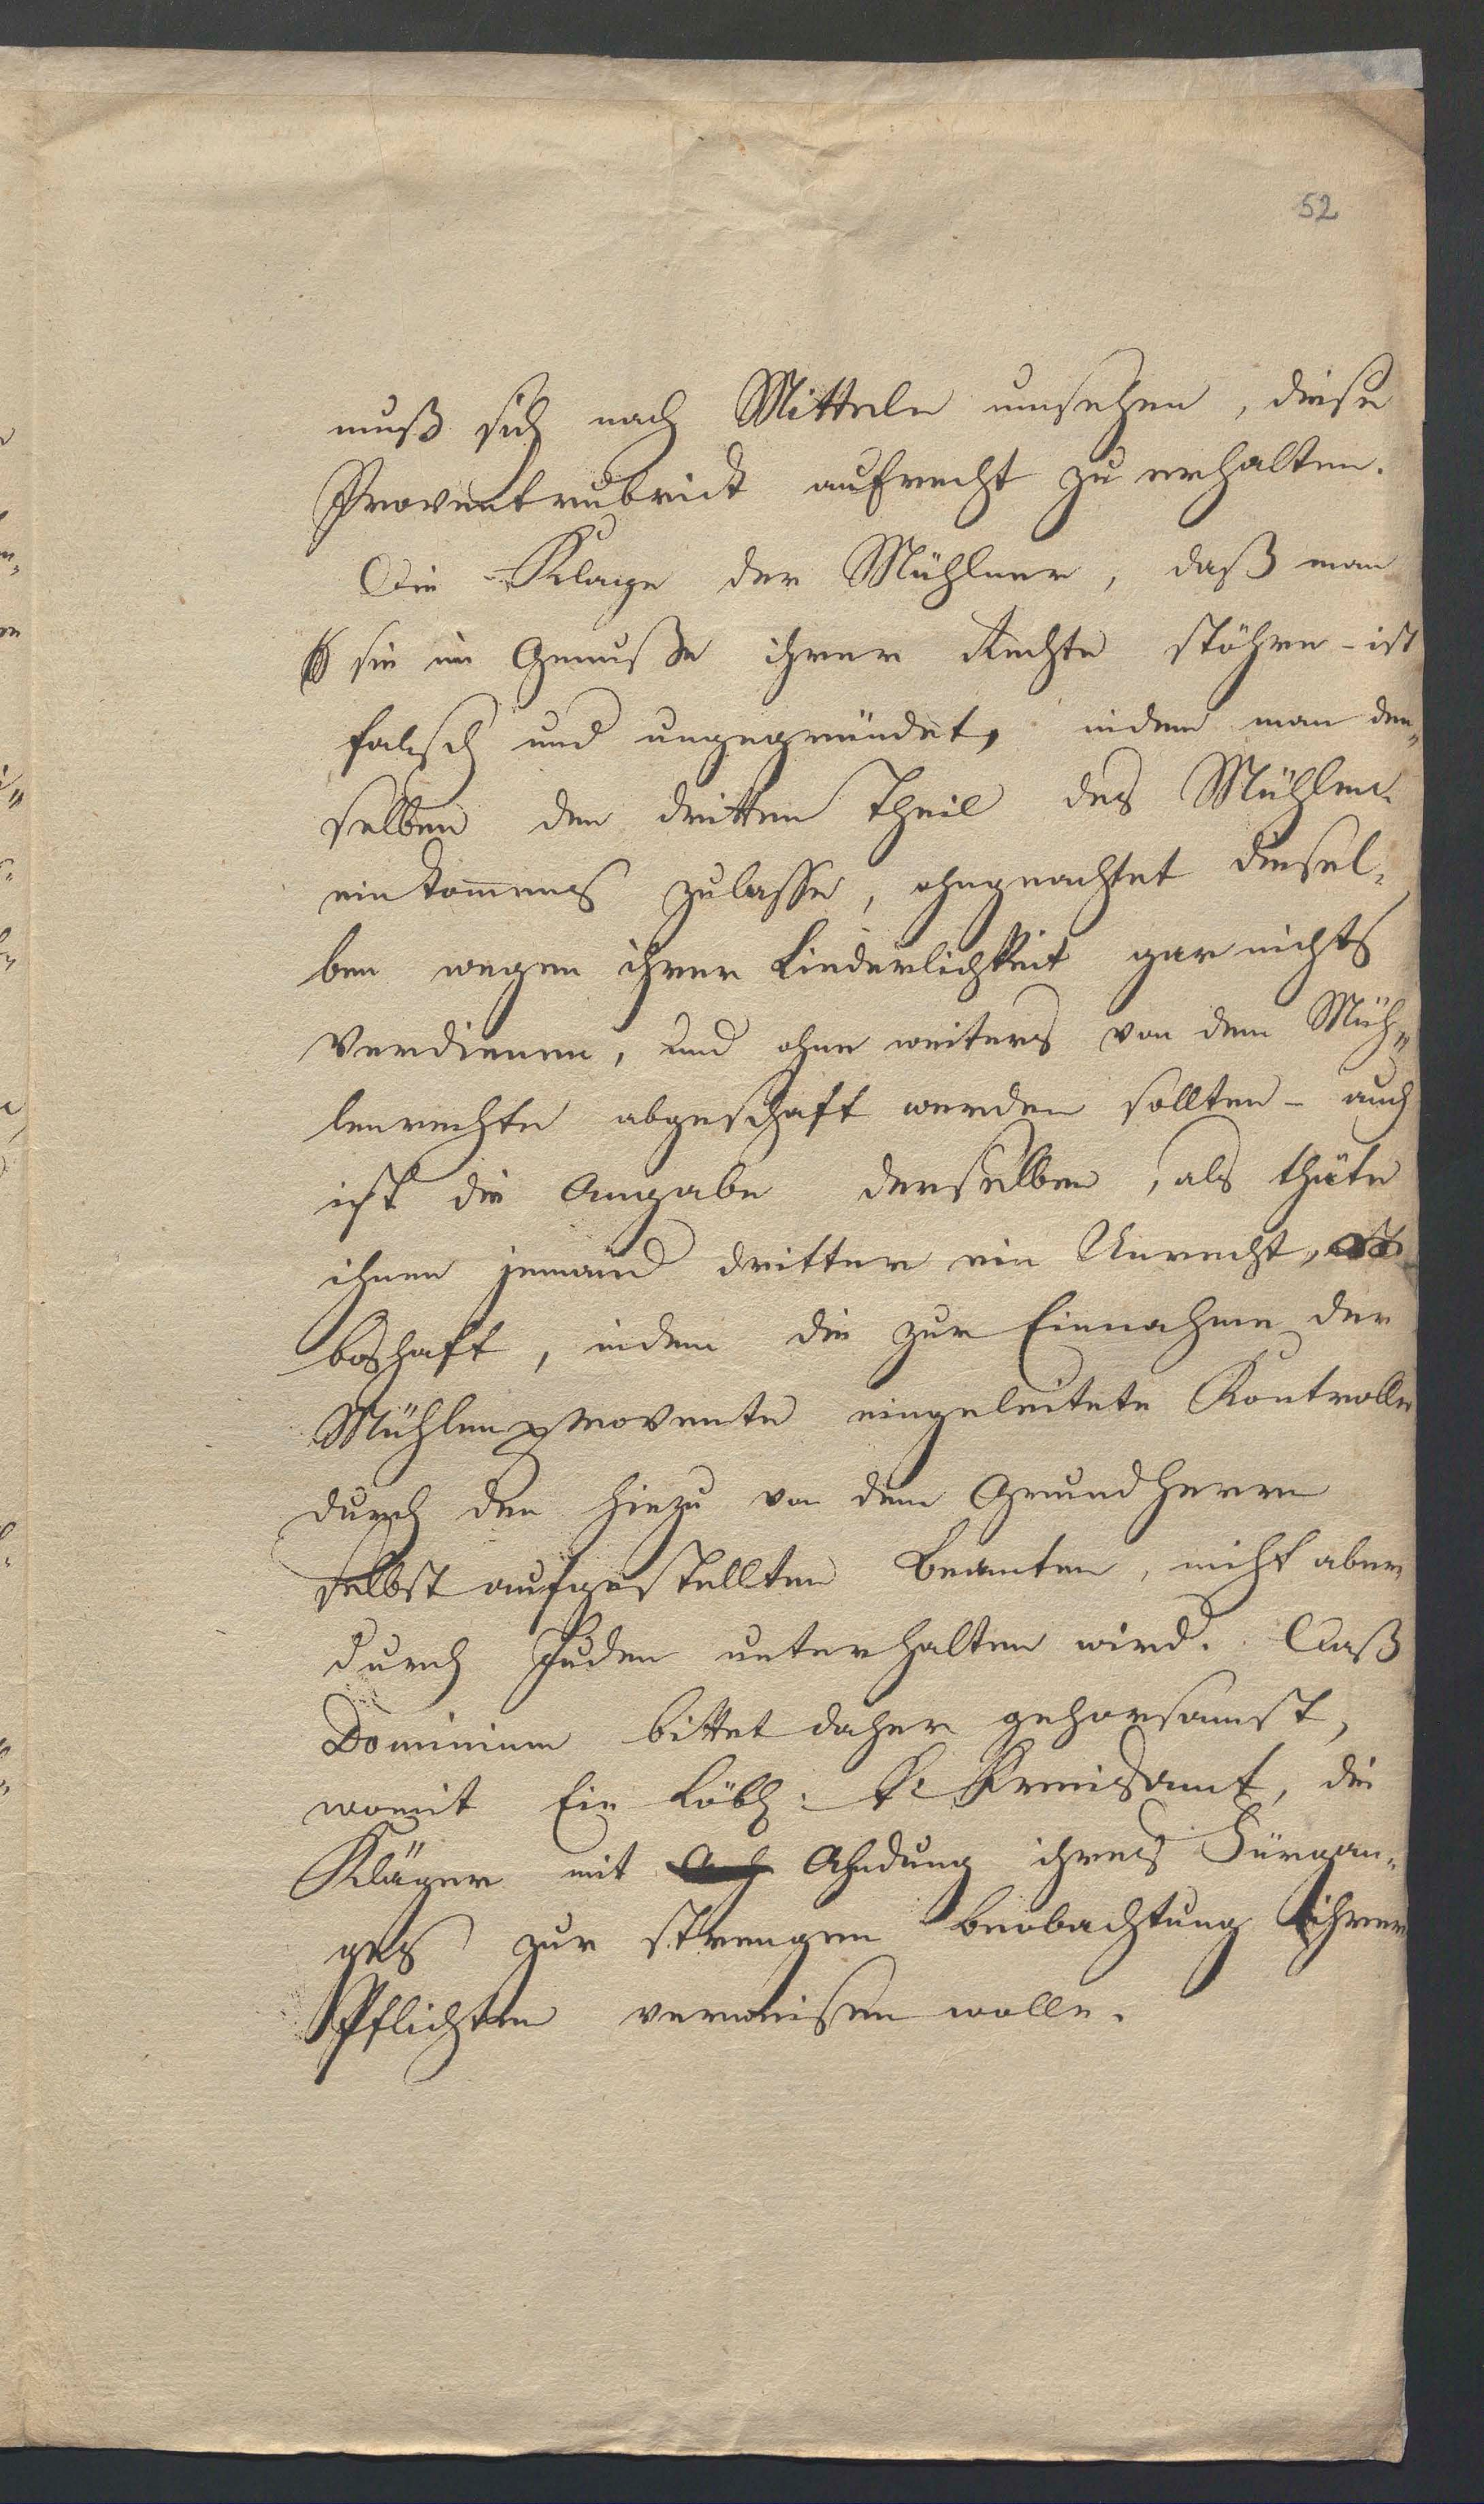 52
muß sich nach Mitteln umsehen, diese
Proventrubrick aufrecht zu erhalten.
Die Klage der Mühlner, daß man
sie im Genuße ihrer Rechte stöhre - ist
falsch und ungegründet, indem man den„
selben den dritten Theil des Mühlen-
einkom̄ens zulasse, ohngeachtet diesel-
ben wegen ihrer Liederlichkeit gar nichts
verdienen, und ohne weiters von dem Müh„
lenrechte abgeschaft werden sollten - auch
ist die Angabe derselben, als thäte
ihnen jemand dritter ein Unrecht,
boshaft, indem die zur Einnahme der
Mühlenprovente eingeleitete Kontrolle
durch den hiezu von dem Grundherrn
selbst aufgestellten Beamten, nicht aber
durch Juden unterhalten wird. Das
Dominium bittet daher gehorsamst,
womit Ein Löbl: K: Kreisamt, die
Kläger mit Ahndung ihres Fürgan-
ges zur strengen Beobachtung ihrer
Pflichten verweisen wolle.